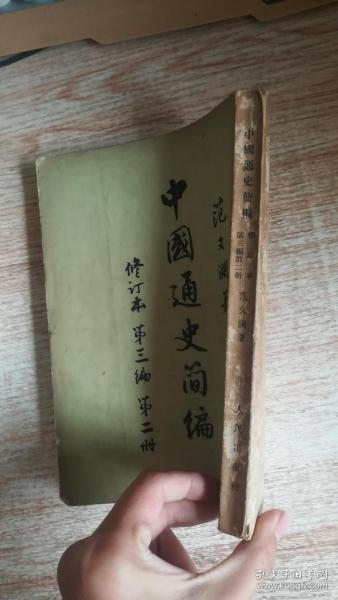 范文澜著
中國通史简编
修订本 第三编 第二册
中國通史簡編
修訂本
第三編第二册
范文瀾著
人民出版社
孔夫子旧书网